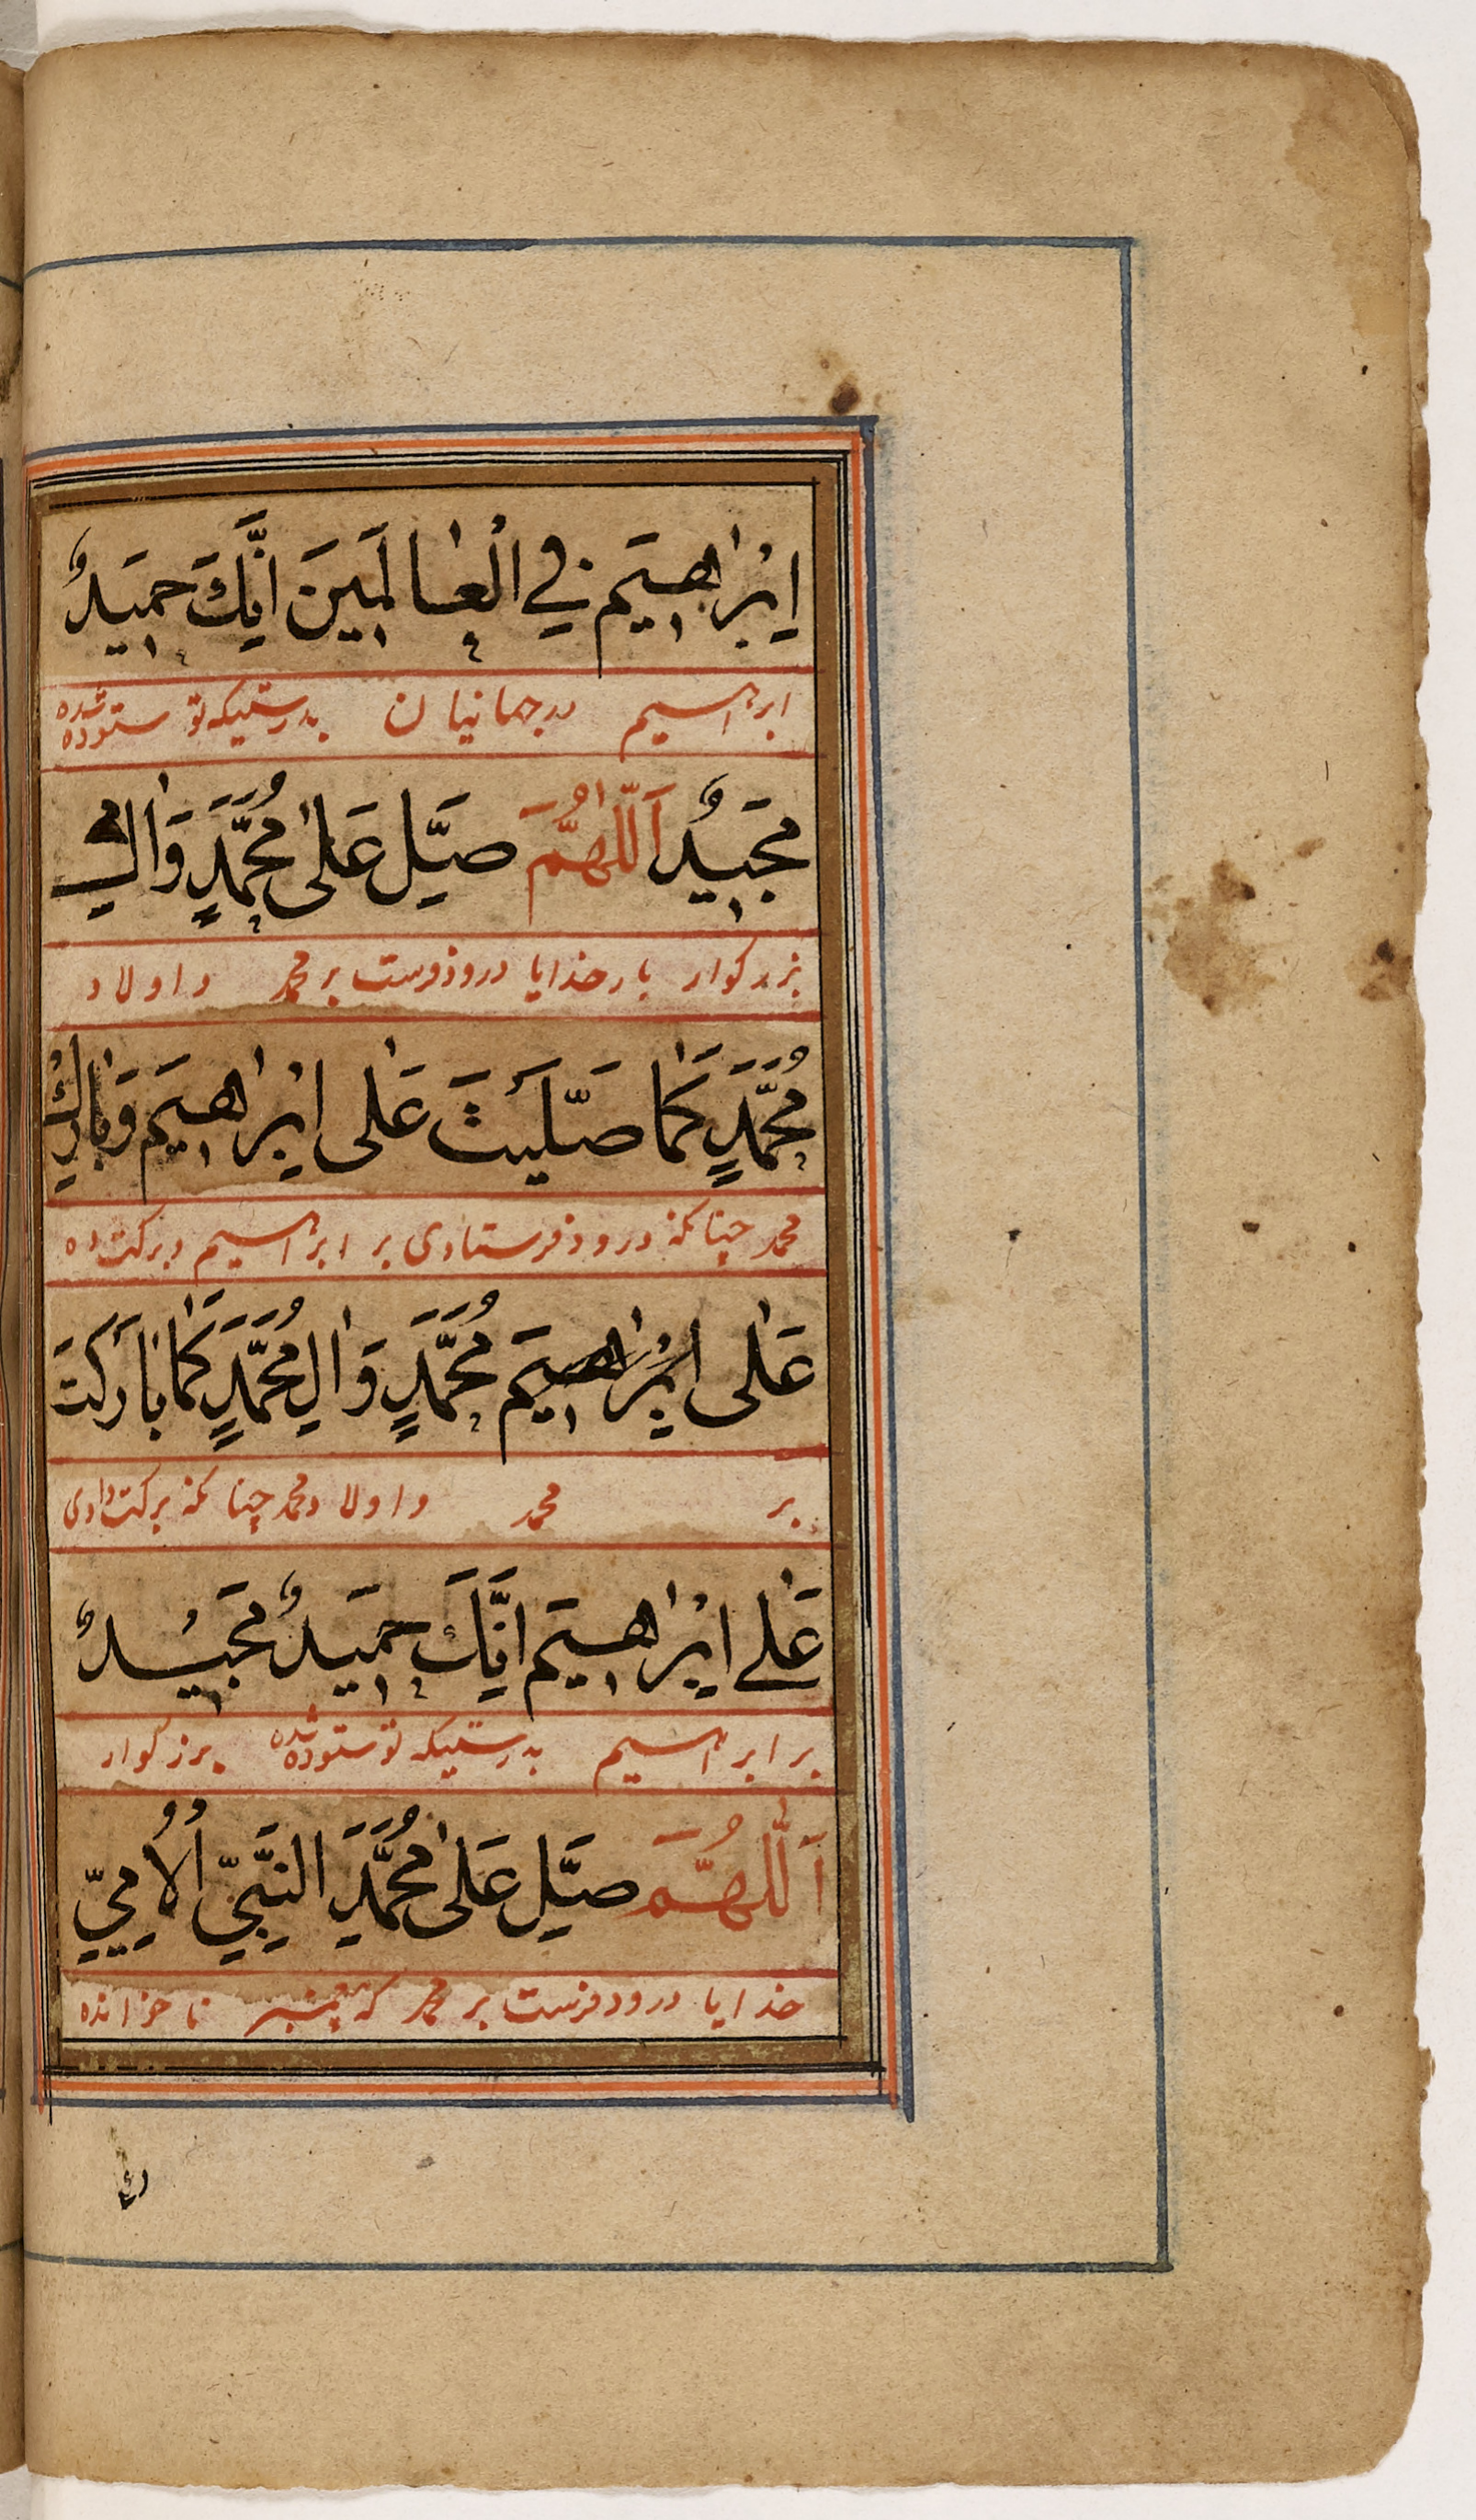 اِبْرٰاهِيَم فِي الْعٰالَمِينَ اِنَّكَ حَمِيدٌ
ابراهیم در جهانیان بدرستیکه تو ستوده شده
مَجِيدٌ اَللّٰهُمَّ صَلِّ عَلٰى مُحَمَّدٍ وَاٰلِ
بزرگوار بار خدایا درود فرست بر محمد و اولاد
مُحَمَّدٍ كَمٰا صَلَّيْتَ عَلٰى اِبْرٰاهِيمَ وَبٰارِكْ
محمد چنانکه درود فرستادی بر ابراهیم و برکت ده
عَلٰى اِبْرٰاهِيمَ مُحَمَّدٍ وَاٰلِ مُحَمَّدٍ كَمٰا بٰارَكْتَ
بر محمد و اولاد محمد چنانکه برکت دادی
عَلٰى اِبْرٰاهِيَم اِنَّكَ حَمِيدٌ مَجِيْدٌ
بر ابراهیم بدرستیکه تو ستوده شده بزرگوار
اَللّٰهُمَّ صَلِّ عَلٰى مُحَمَّدٍ النَّبِيِّ الْاُمِّيِّ
خدایا درود فرست بر محمد که پیغمبر نا خوانده